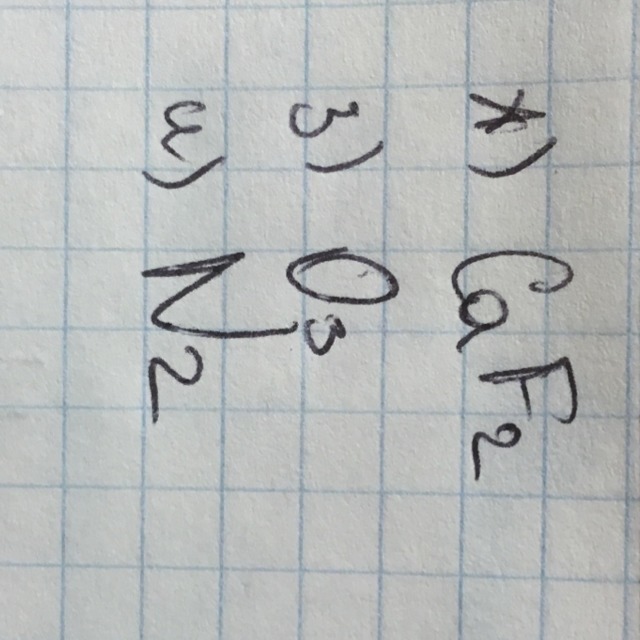 ж) CaF2
з) O3
и) N2